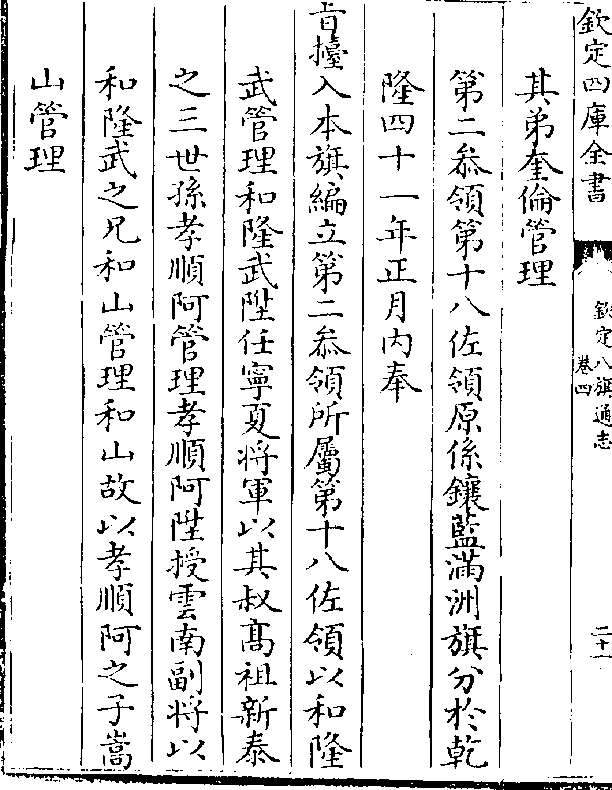 欽定四庫全書
欽定八旗通志
卷四
二十一
其弟奎倫管理
第二叅領第十八佐領原係鑲藍滿洲旗分於乾
隆四十一年正月内奉
旨擡入本旗編立第二叅領所屬第十八佐領以和隆
武管理和隆武陞任寧夏将軍以其叔高祖新泰
之三世孫孝順阿管理孝順阿陞授雲南副将以
和隆武之兄和山管理和山故以孝順阿之子嵩
山管理